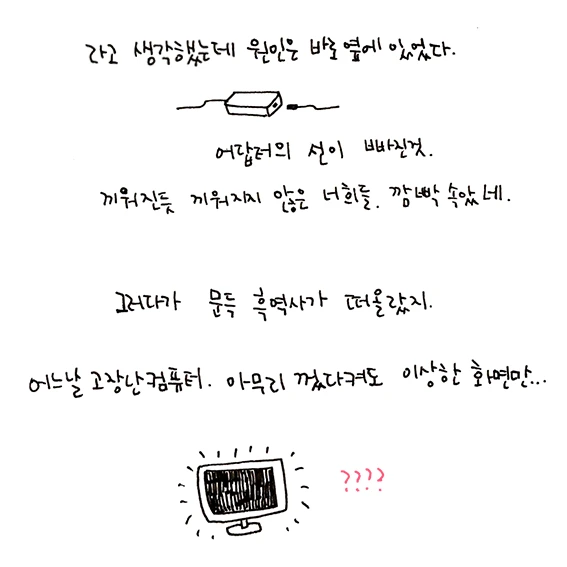 라고 생각했는데 원인은 바로 옆에 있었다.
어답터의 선이 빠진것.
끼워진듯 끼워지지 않은 너희들. 깜빡 속았네.
그러다가 문득 흑역사가 떠올랐지.
어느날 고장난 컴퓨터. 아무리 껐다켜도 이상한 화면만...
????